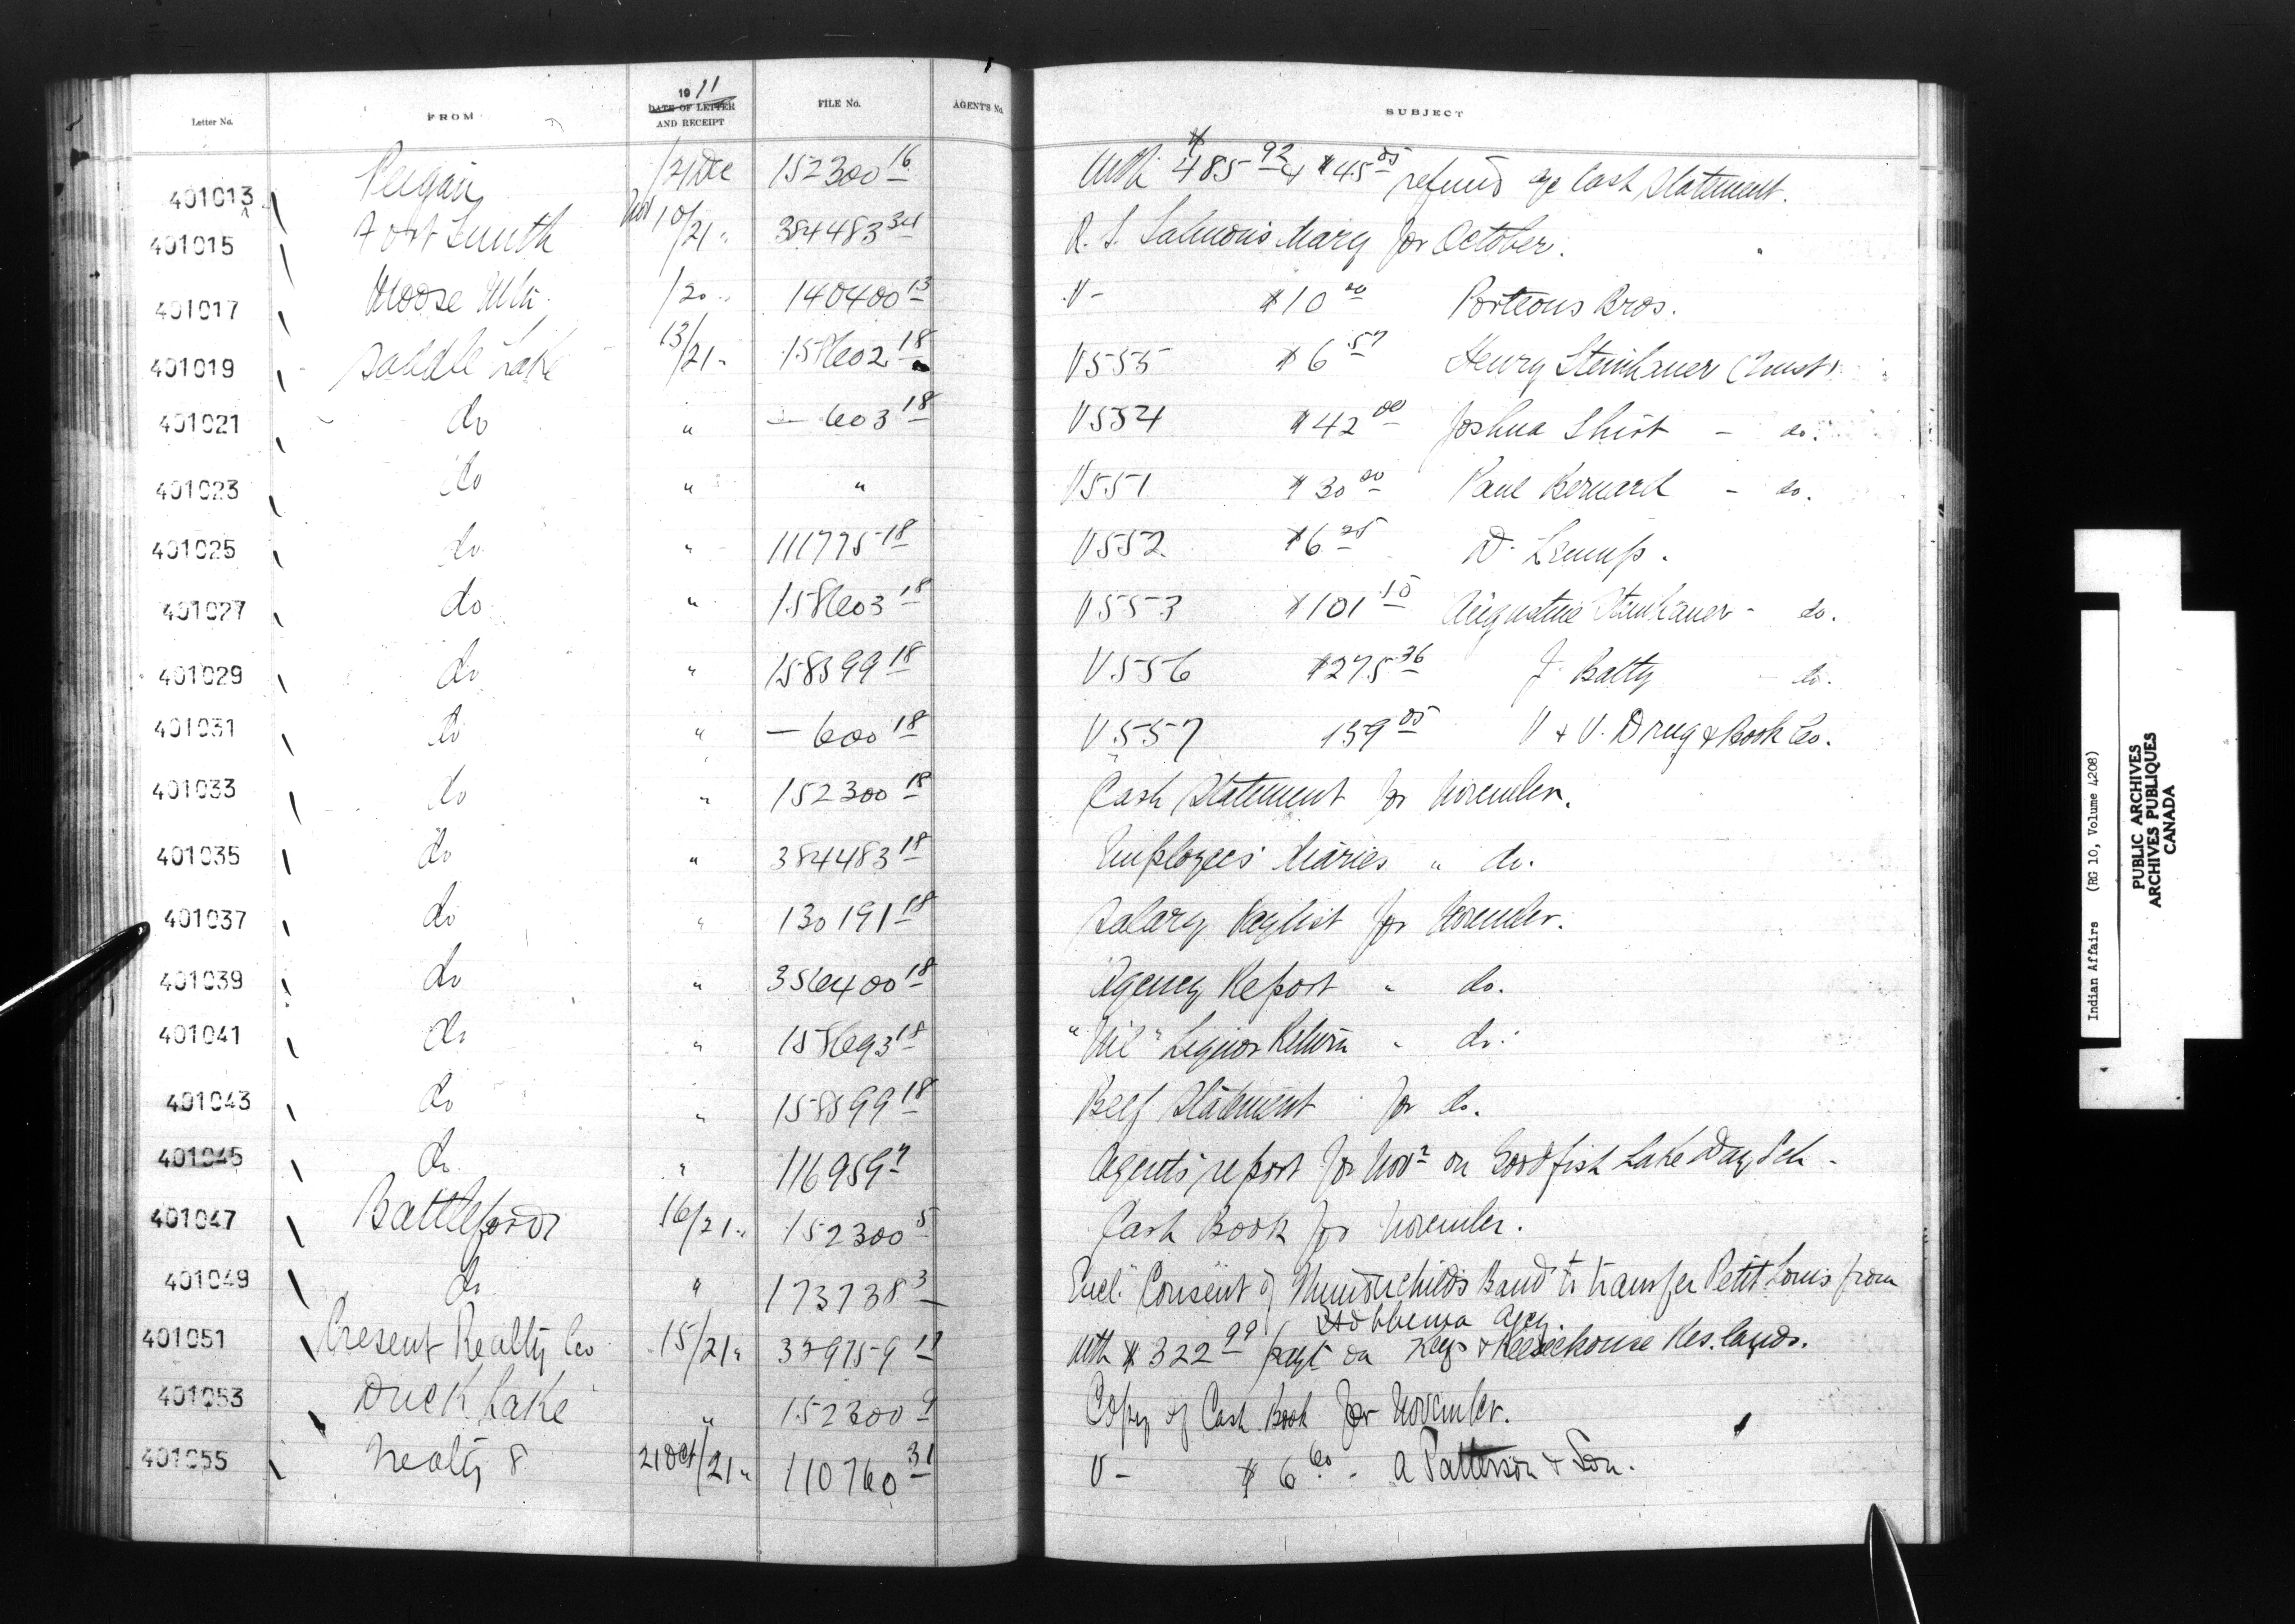 1911
Letter No. FROM DATE OF LETTER AND RECEIPT FILE No. AGENT'S No. SUBJECT
401013 Peigan /21 Dec 152300 16 With $485 92 & $45 05 refund a/c Cash Statement.
401015 Fort Smith Nov 10/21 " 384483 34 R. S. Salmon's diary for October.
401017 Moose Mtn. /20 " 140400 13 V - $10 00 Porteous Bros.
401019 Saddle Lake 13/21 " 158602 18 V555 $6 57 Henry Steinhauer (Trust)
401021 do " — 603 18 V554 $42 00 Joshua Shirt - do.
401023 do " " V551 $30 00 Paul Bernard - do.
401025 do " 111775 18 V552 $6 25 D.
401027 do " 158603 18 V553 $101 10 Augustine Steinhauer - do.
401029 do " 158599 18 V556 $275 36 J. Batty do.
401031 do " — 600 18 V557 159 05 V & V. Drug & Book Co.
401033 do " 152300 18 Cash Statement for November.
401035 do " 384483 18 Employees' diaries " do.
401037 do " 130191 18 Salary Paylist for November.
401039 do " 356400 18 Agency Report " do.
401041 do " 158693 18 "Nil" Liquor Return " do.
401043 do " 158599 18 Beef Statement for do.
401045 do " 116959 Agent's report for Novr on Goodfish Lake Day Sch -
401047 Battleford 16/21 " 152300 5 Cash Book for November.
401049 do " 173738 3 Encl. Consent of Thunderchild's Band to transfer Petit Louis from
Hobbema Agcy.
401051 Cresent Realty Co 15/21 " With $322 99 payt on Keys & Keeseekouse Res. lands.
401053 Duck Lake " 152300 9 Copy of Cash Book for November.
401055 Treaty 8 21 Oct/21 " 110760 31 V - $6 60 - A Patterson & Son.
Indian Affairs (RG 10, Volume 4208)
PUBLIC ARCHIVES
ARCHIVES PUBLIQUES
CANADA